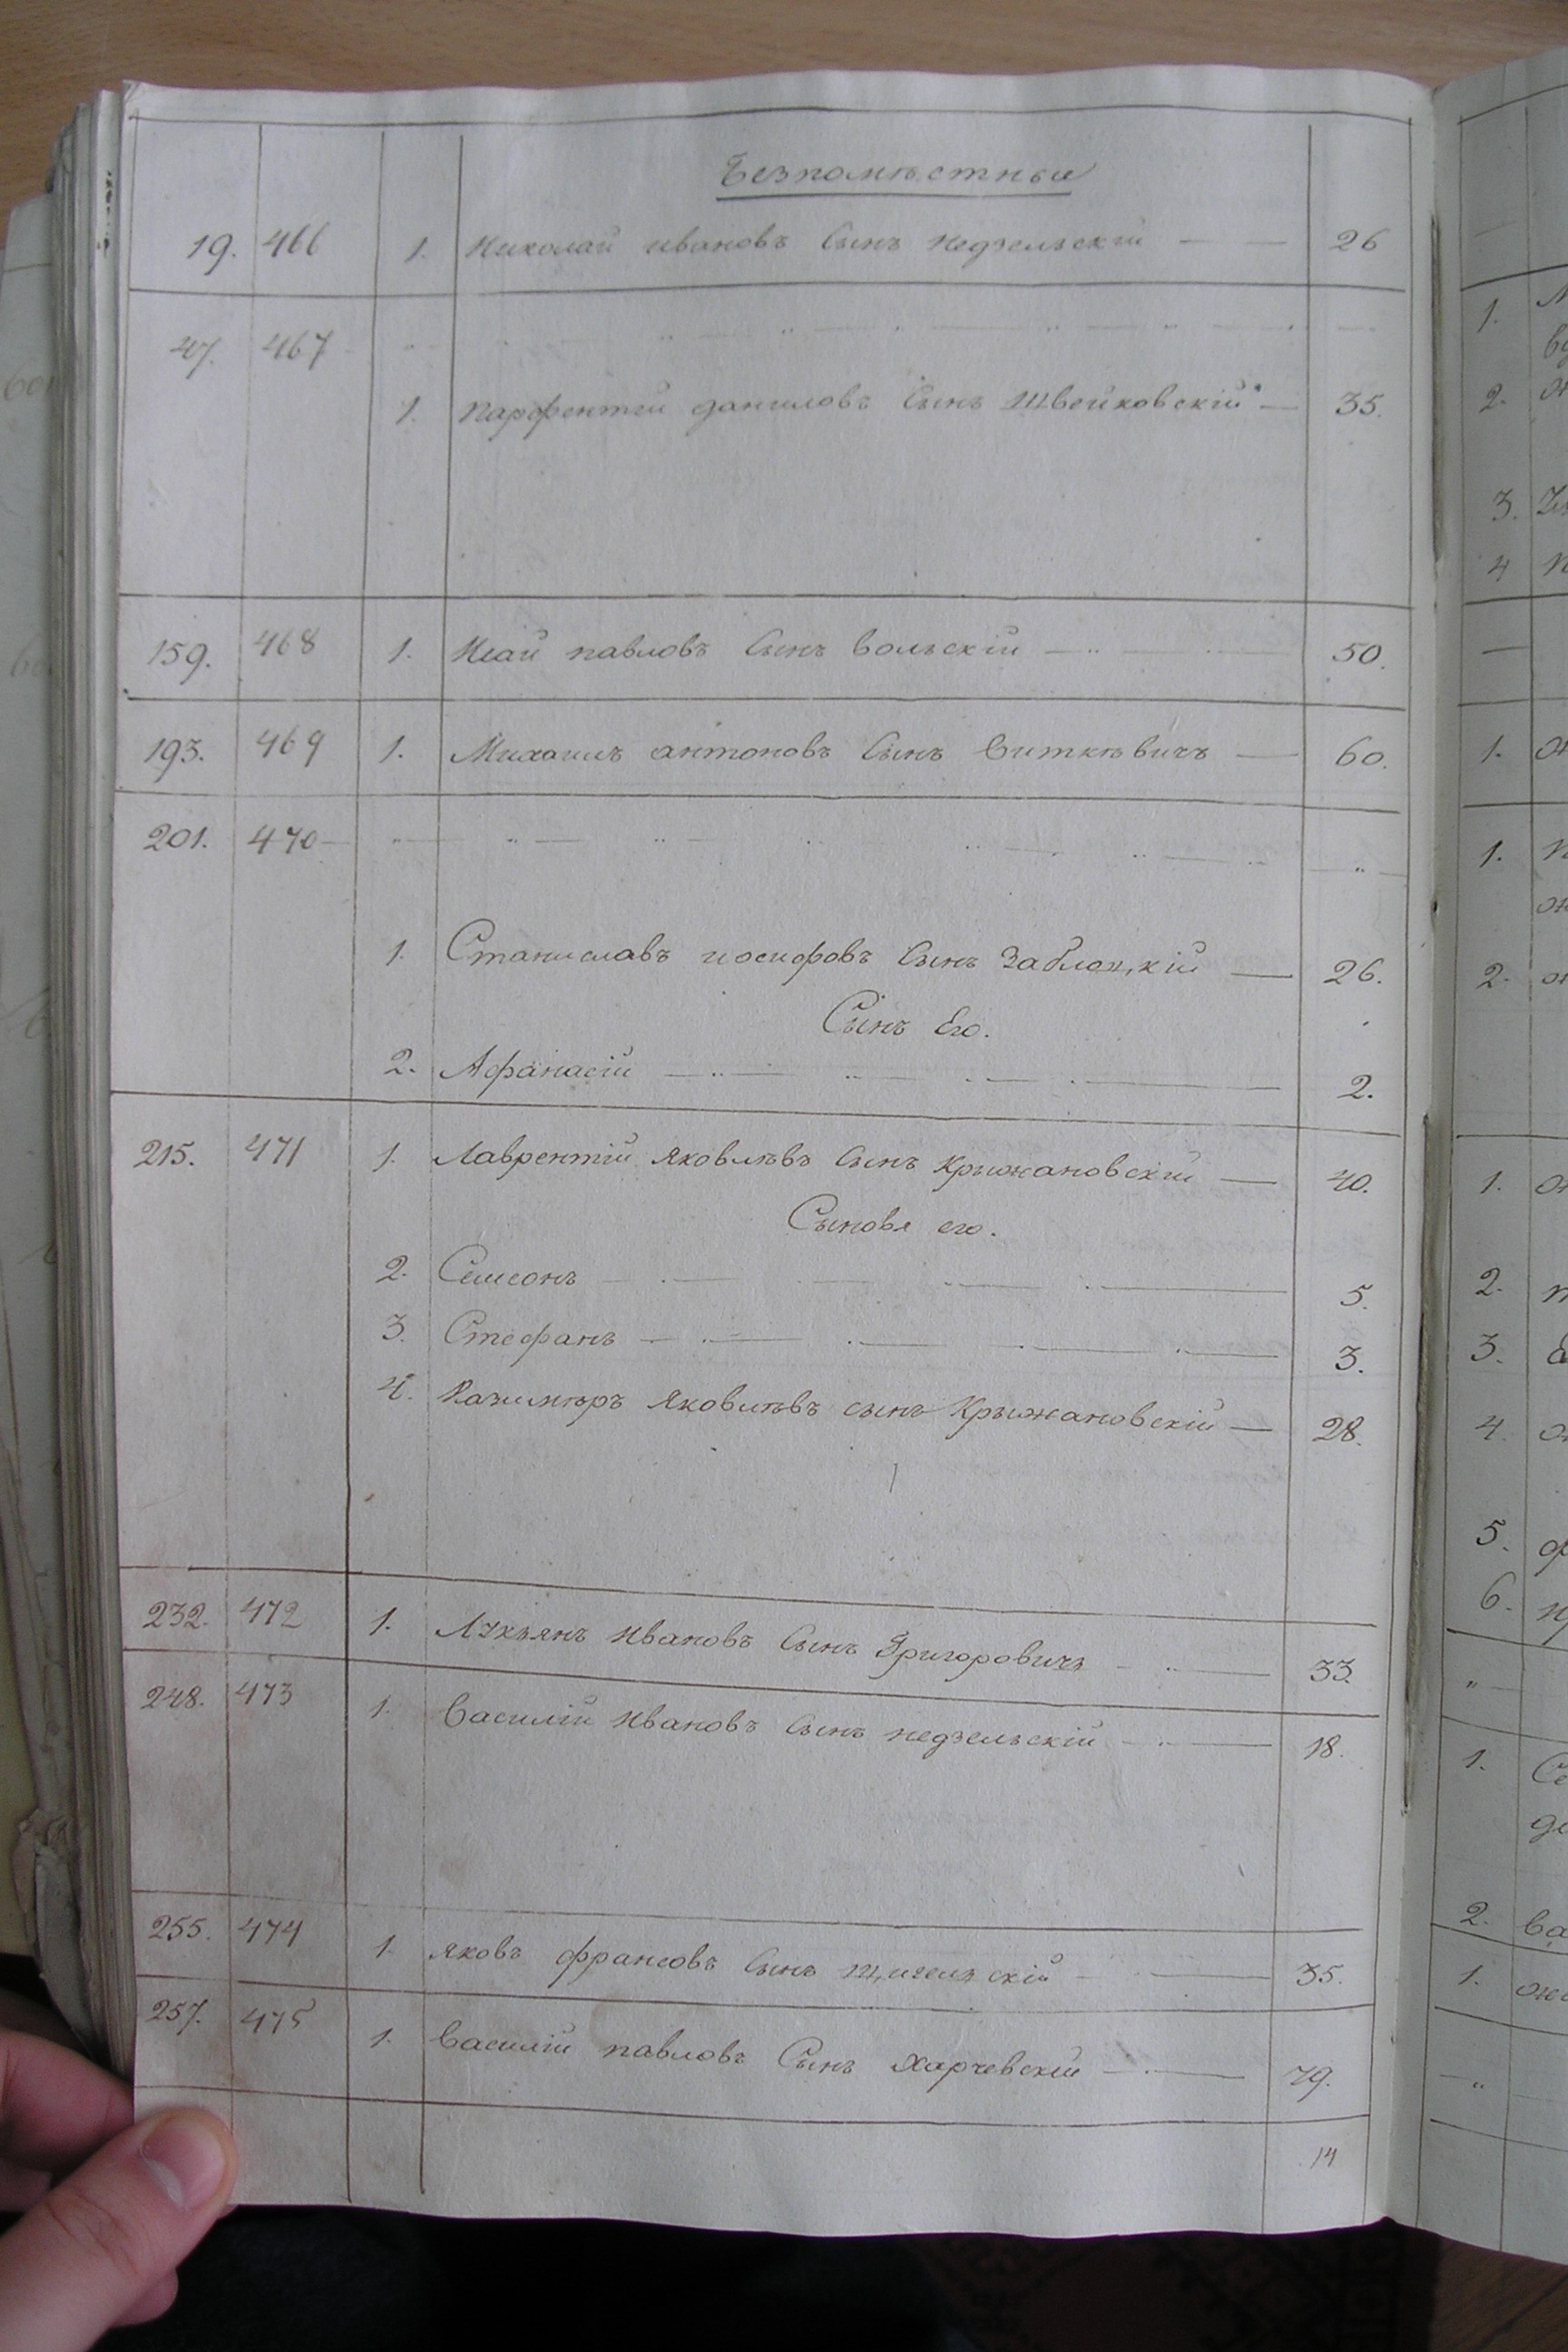 Безпоместныя
19. 466 1. Николай ивановъ Сынъ Недзельскій 26
47. 467
1. Парфентій даниловъ Сынъ Швейковскій 35.
159. 468 1. павловъ Сынъ вольскій 50.
193. 469 1. Михаилъ антоновъ Сынъ Виткѣвичъ 60.
201. 470
1. Станиславъ иосифовъ Сынъ Заблоцкій 26.
Сынъ Его.
2. Афанасій 2.
215. 471 1. Лаврентій Яковлѣвъ Сынъ Крыжановскій 40.
Сыновя его.
2. Семеонъ 5.
3. Стефанъ 3.
4. Казимѣръ Яковлѣвъ сынъ Крыжановскій 28.
232. 472 1. Лукьянъ Ивановъ Сынъ Григоровичъ 33.
248. 473 1. Василій Ивановъ Сынъ недзельскій 18.
255. 474 1. яковъ Сынъ 35.
257. 475 1. Василій павловъ Сынъ Харчевскій 79.
14
1.
2.
3.
4
1.
1.
2.
1.
2.
3.
4.
5.
6.
1.
2.
1.